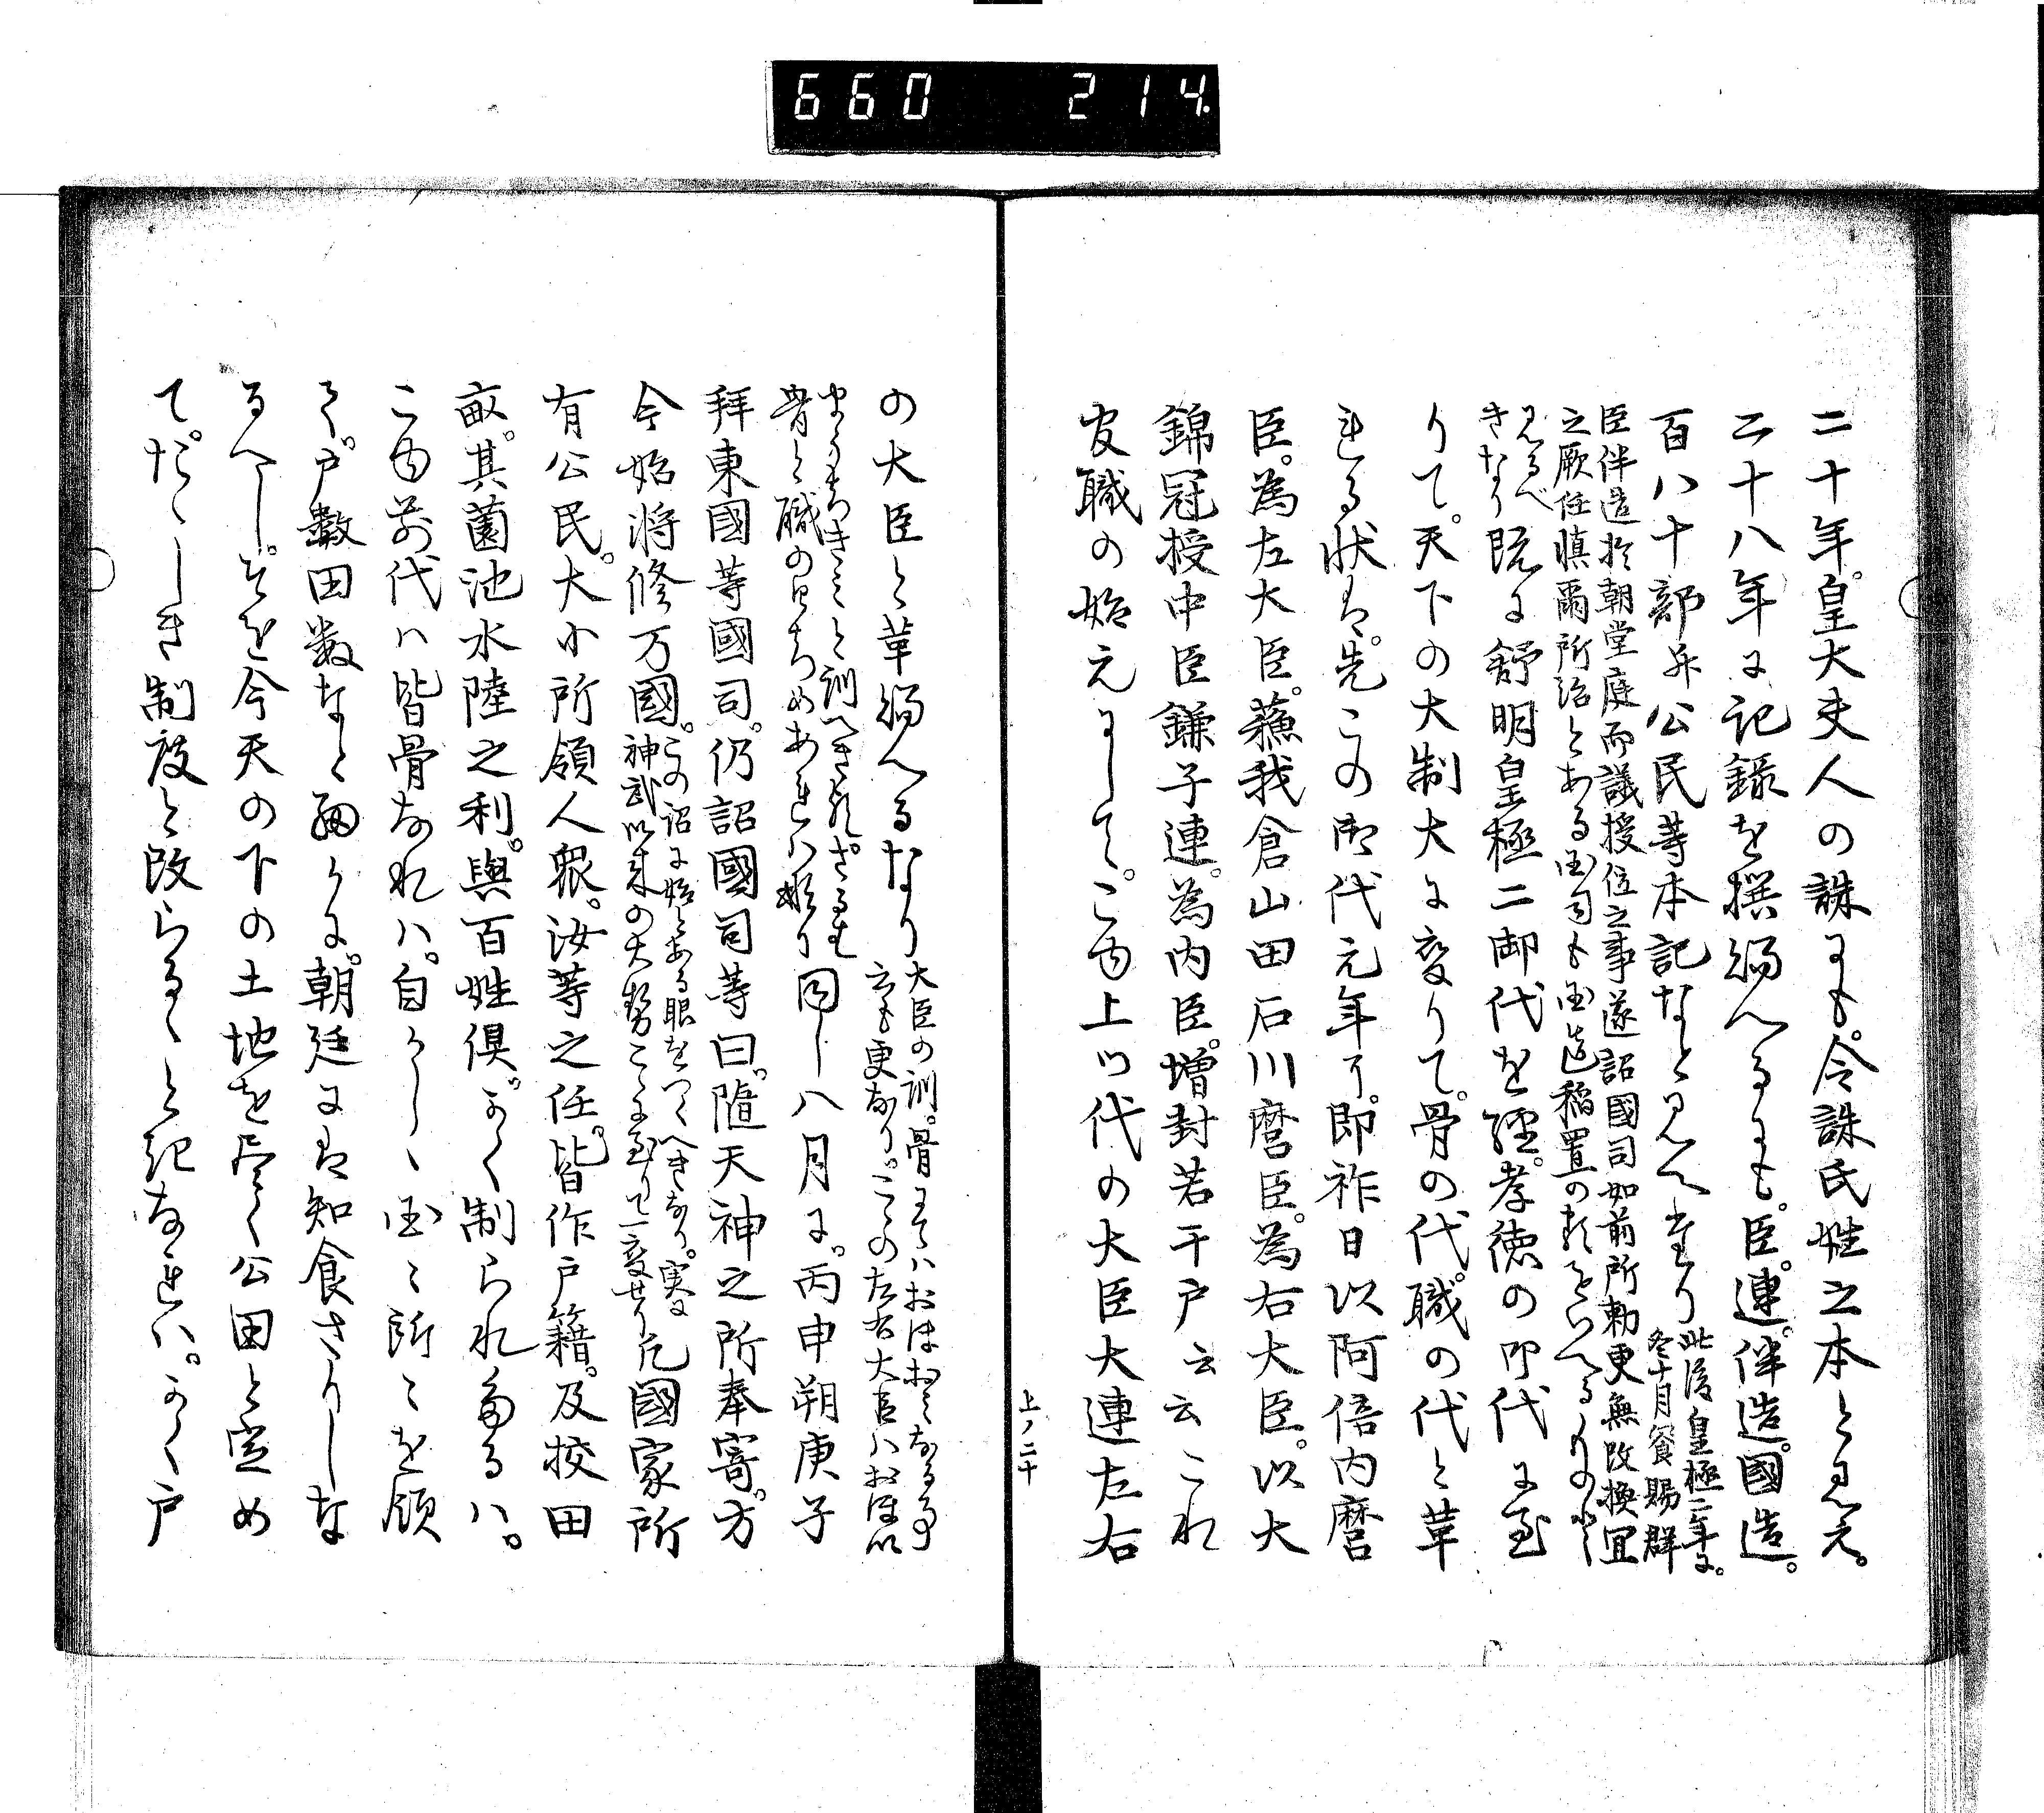 660 214.
二十年。皇大夫人の誄にも。今誄氏姓之本と見え。
二十八年に記録を撰給へるにも。臣。連。伴造。國造。
百八十部并公民等本記なと見へたり此後皇極二年に。
冬十月饗賜群
臣伴造於朝堂庭而議授位之事遂詔國司如前所勅更無改換宜
之厥任慎爾所治とある国司も国造稲置の類をいへるものと
見るべ
きなり既に舒明皇極二御代を経。孝徳の御代に至
りて。天下の大制大に変りて。骨の代。職の代と革
れる状は。先この御代元年に。即祚日以阿倍内麿
臣。為左大臣。蘓我倉山田石川麿臣。為右大臣。以大
錦冠授中臣鎌子連。為内臣。増封若干戸云云これ
官職の始元にして。こゆ上つ代の大臣大連左右
上ノ二十
の大臣と革給へるなり大臣の訓。骨にてハおほおみなる事
云も更なり。この左右大臣ハおほい
まうちきみと訓へき
骨と職の 同し八月に。丙申朔庚子
拜東國等國司。仍詔國司等曰。隨天神之所奉寄。方
今始将修万國。この詔に始とある眼をつくへきなり。実に
神武以来の大 こゝに至りて一変せり凡國家所
有公民。大小所領人衆。汝等之任。皆作戸籍。及校田
畝。其薗池水陸之利。與百姓倶。かく制られたるハ。
こゆ前代ハ皆骨なれハ。自かしゝ国々所々を領
て。戸數田数なと細かに。朝廷には知食さりしな
るへし。そを今天の下の土地を尽く公田と定め
て。たゝしき制度と改らるゝと記なれハ。かく戸